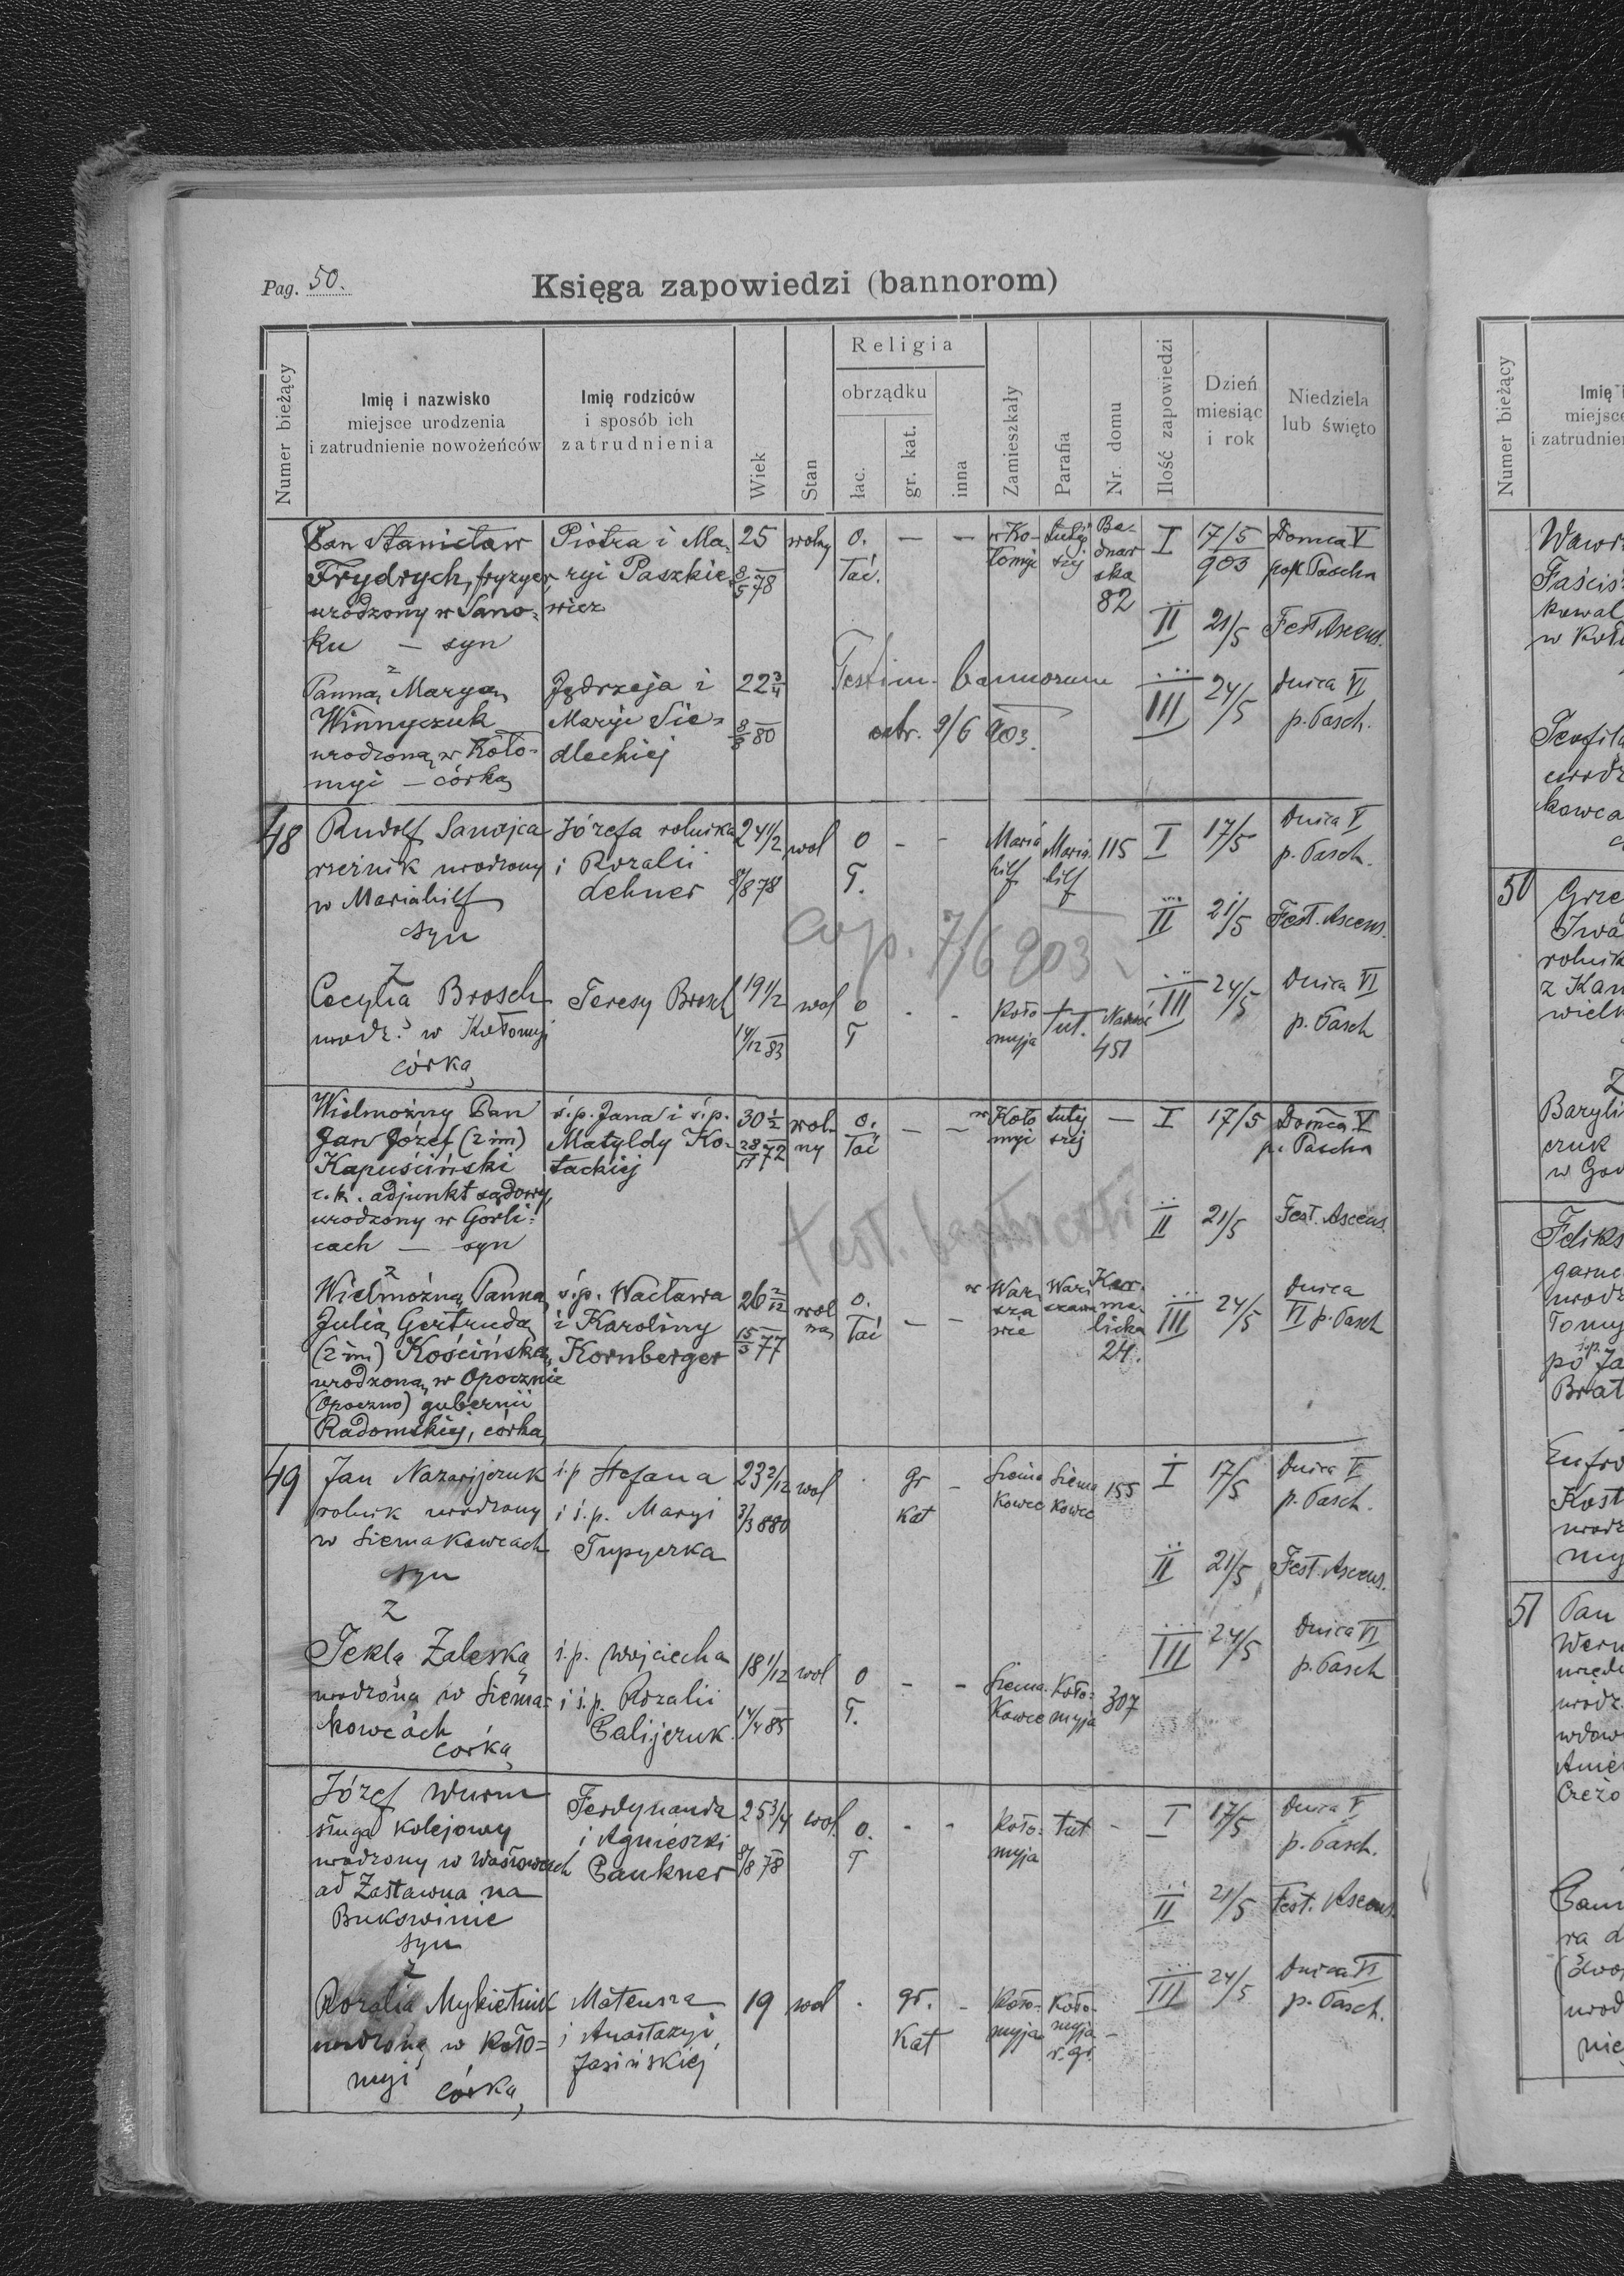 Pag. 50.
Księga zapowiedzi (bannorom)
Numer bieżący
Imię i nazwisko
miejsce urodzenia
i zatrudnienie nowożeńców
Imię rodziców
i sposób ich
zatrudnienia
Wiek
Stan
Religia
obrządku
łac.
gr. kat.
inna
Zamieszkały
Parafia
Nr. domu
Ilość zapowiedzi
Dzień
miesiąc
i rok
Niedziela
lub święto
Pan Stanisław
Frydrych, fryzyer,
urodzony w Sano-
ku — syn
Piotra i Ma-
ryi Paszkie-
wicz
25
8/5 78
wolny
o.
łać.
—
—
w Ko-
łomyi
tutej
szej
Be-
dnar
ska
82
I
17/5
903
Domca V
post Pascha
II
21/5
Fest. Ascens.
z
Panną Maryą
Winnyczuk
urodzoną w Koło-
myi — córką
Jędrzeja i
Maryi Sie-
dleckiej
22 3/4
8/8 80
Testim. bannorum
extr. 9/6 903.
III
24/5
Dnica VI
p. Pasch.
48
Rudolf Sanojca
rzeźnik urodzony
w Mariahilf
syn
Józefa rolnika
i Rozalii
Lehner
24 1/2
8/8 78
wol
o
ł.
-
-
Maria
hilf
Maria
hilf
115
I
17/5
Dnica V
p. Pasch.
II
21/5
Fest. Ascens.
cop. 7/6 903
z
Cecylią Brosch
urodz. w Kołomyi
córką
Teresy Brosch
19 1/2
14/12 83
wol
o
ł
-
-
Koło
myja
tut.
451
III
24/5
Dnica VI
p. Pasch
Wielmożny Pan
Jan Józef (2 im)
Kapuściński
c.k. adjunkt sądowy,
urodzony w Gorli-
cach — syn
ś.p. Jana i ś.p.
Matyldy Ko-
łackiej
30 1/2
28/11 72
wol-
ny
o.
łać
—
—
w Koło
myi
tutej
szej
—
I
17/5
Domca V
p. Pascha
II
21/5
Fest. Ascens
test
z
Wielmożną Panną
Julią Gertrudą
(2 im) Kościńską,
urodzoną w Opocznie
(Opoczno) gubernii
Radomskiej, córką
ś.p. Wacława
i Karoliny
Kornberger
26 2/12
15/3 77
wol
na
o.
łać
—
—
w War
sza
wie
War
szaw
Kar-
me-
licka
24.
III
24/5
Dnica
VI p. Pasch
49
Jan Nazarijczuk
rolnik urodzony
w Siemakowcach
syn
ś.p Stefana
i ś.p. Maryi
Tupyerka
23 2/12
3/3 880
wol
.
gr
kat
-
Siema
kowce
Siema
kowce
155
I
17/5
Dnica V
p. Pasch.
II
21/5
Fest. Ascens.
z
Teklą Zaleską
urodzoną w Siema-
kowcach
córką
ś.p. Wojciecha
i ś.p. Rozalii
Palijczuk
18 1/12
14/4 85
wol
o
ł.
-
-
Siema-
kowce
Koło-
myja
307
III
24/5
Dnica VI
p. Pasch
Józef Wurm
sługa kolejowy
ad Zastawna na
Bukowinie
syn
Ferdynanda
i Agnieszki
Paukner
25 3/4
8/8 78
wol.
o.
ł
-
-
Koło-
myja
tut
-
I
17/5
Dnica V
p. Pasch.
II
21/5
Fest. Ascens.
z
Rozalią Mykietniuk
urodzoną w Koło-
myi córką
Mateusza
i Anastazyi
Jasińskiej
19
wol
.
gr.
kat
-
Koło-
myja
Koło-
myja
r. gr.
-
III
24/5
Dnica VI
p. Pasch.
Numer bieżący
Imię i
miejsce
i zatrudnien
50
51
Pan